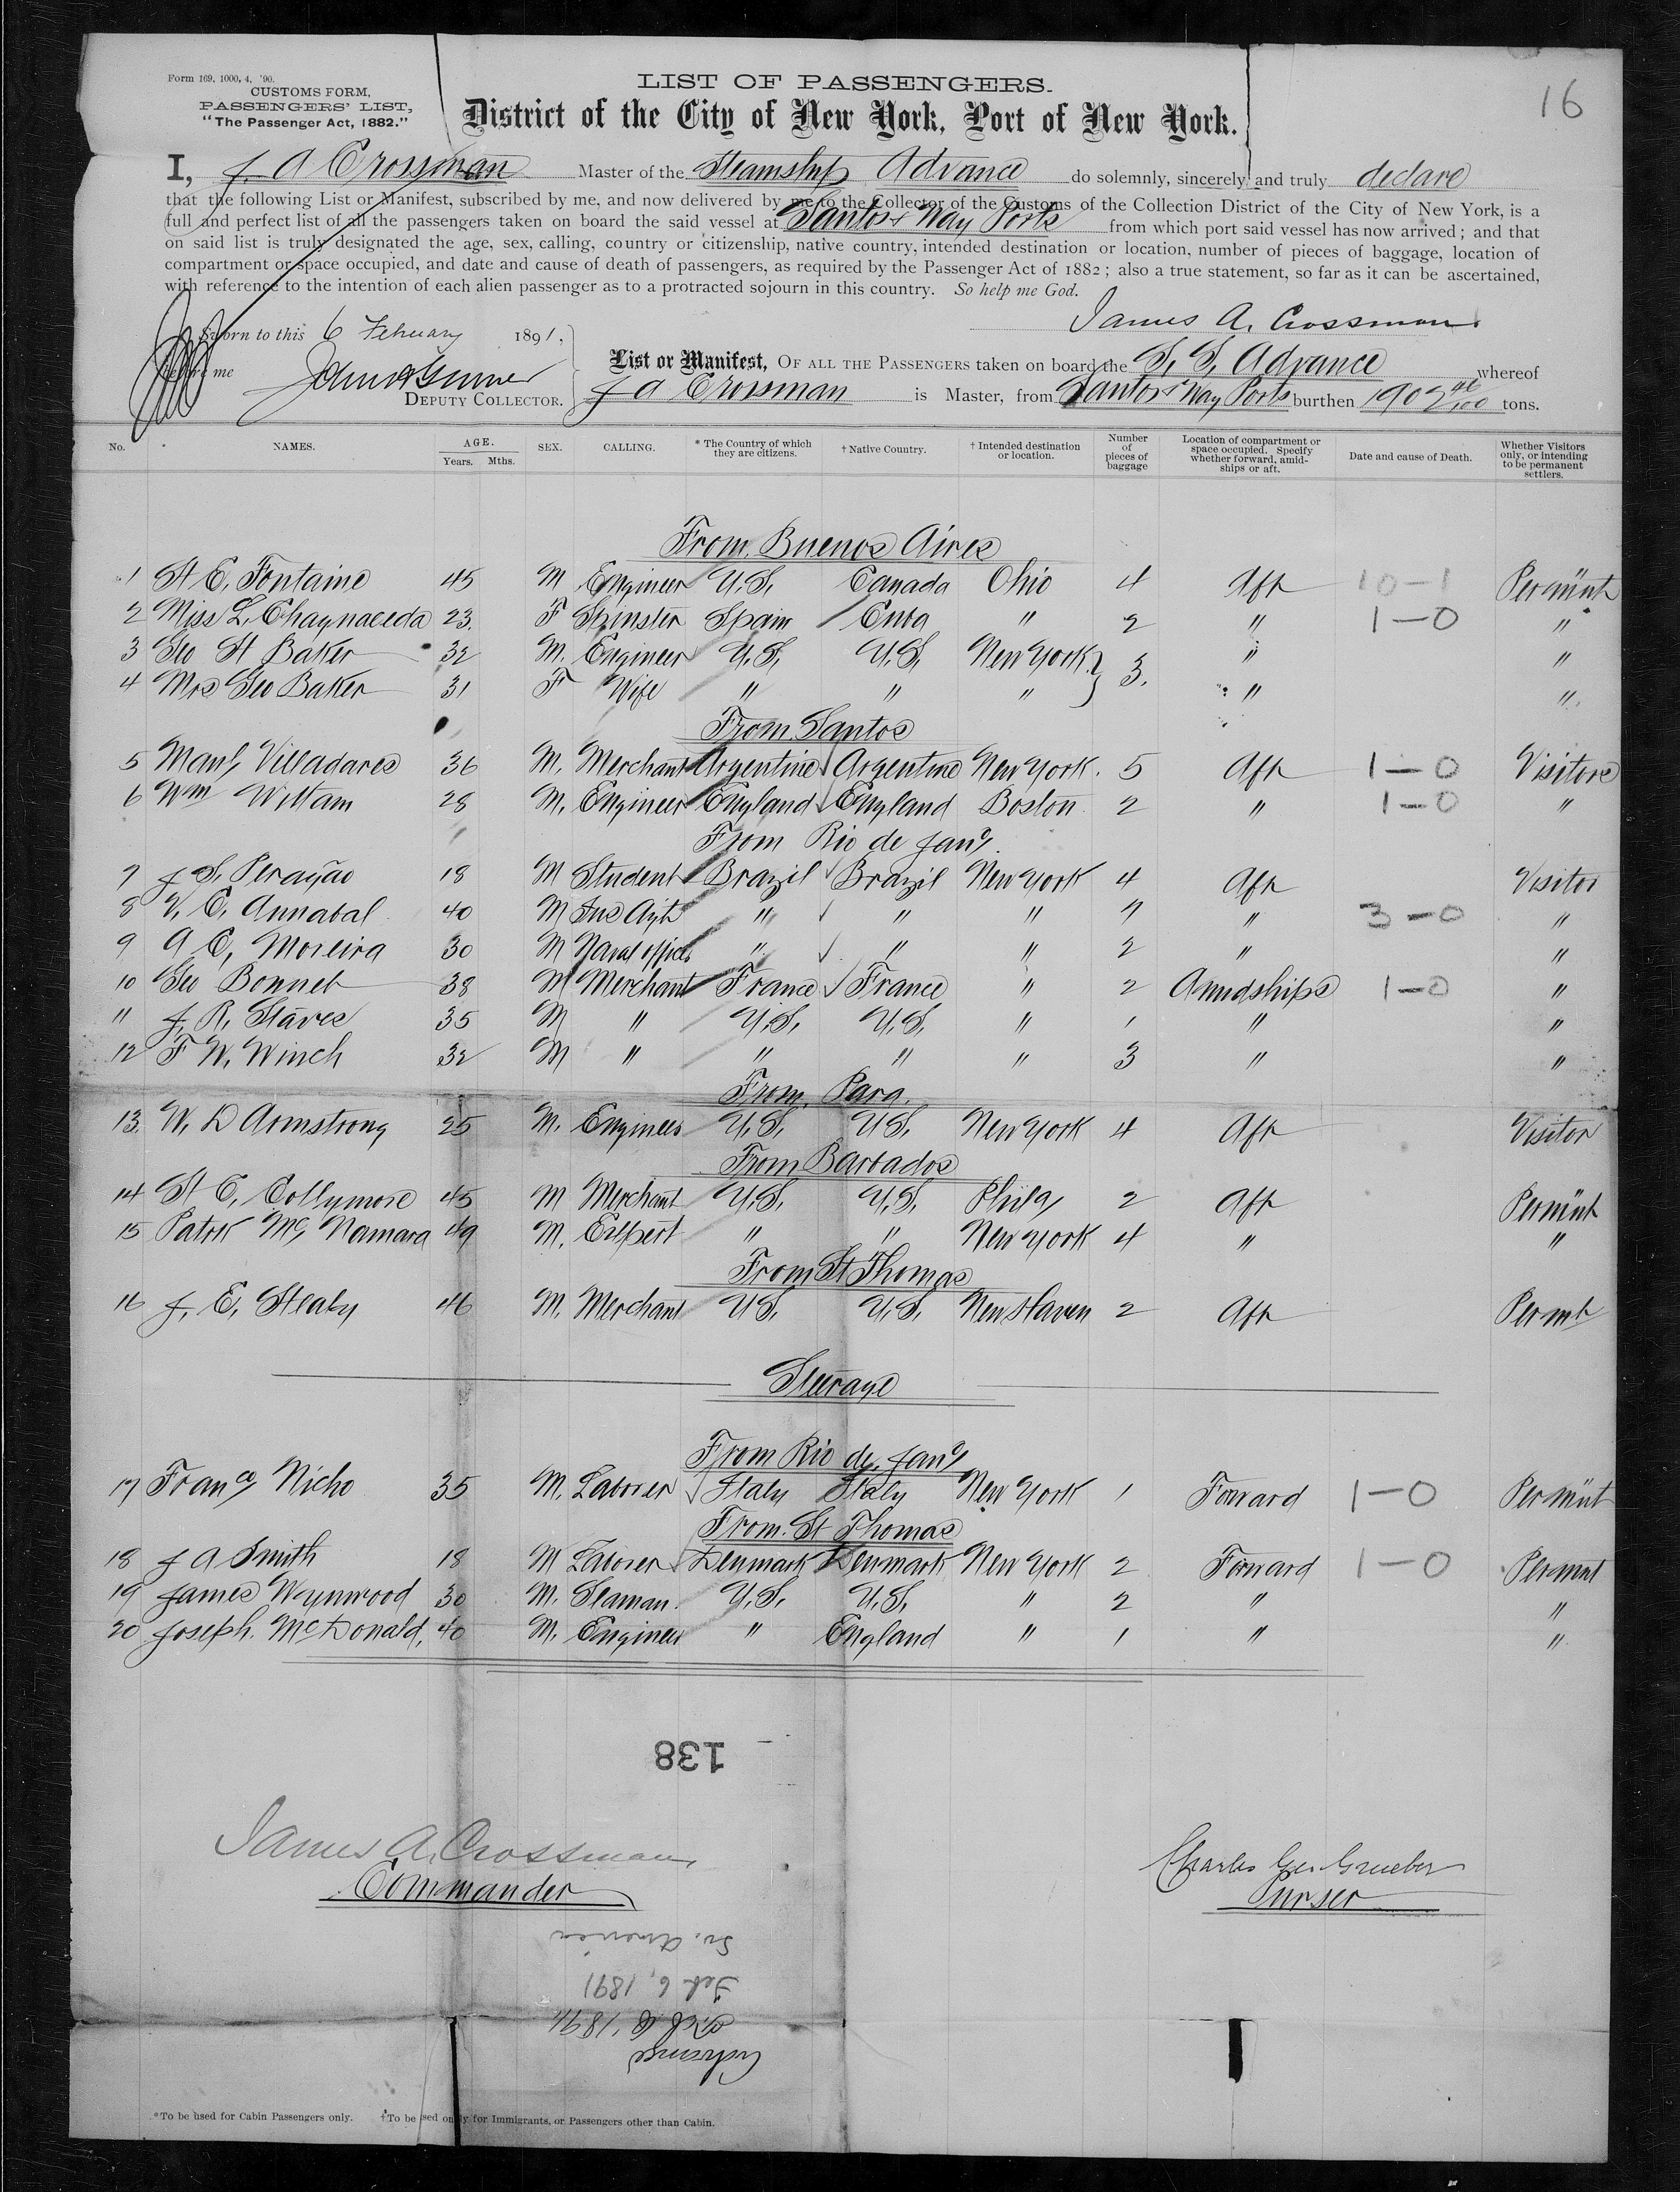 16
Form 169, 1000, 4, '90.
CUSTOMS FORM,
PASSENGERS' LIST,
"The Passenger Act, 1882."
LIST OF PASSENGERS.
District of the City of New York, Port of New York.
I, J. A Crossman Master of the Steamship Advance do solemnly, sincerely and truly declare
that the following List or Manifest, subscribed by me, and now delivered by me to the Collector of the Customs of the Collection District of the City of New York, is a
full and perfect list of all the passengers taken on board the said vessel at Santos & Way Ports from which port said vessel has now arrived; and that
on said list is truly designated the age, sex, calling, country or citizenship, native country, intended destination or location, number of pieces of baggage, location of
compartment or space occupied, and date and cause of death of passengers, as required by the Passenger Act of 1882; also a true statement, so far as it can be ascertained,
with reference to the intention of each alien passenger as to a protracted sojourn in this country. So help me God.
James A. Crossman.
Sworn to this 6 February 1891,
before me
DEPUTY COLLECTOR.
List or Manifest, OF ALL THE PASSENGERS taken on board the S. S. Advance whereof
J A Crossman is Master, from Santos & Way Ports burthen 1902 tons.
No. NAMES. AGE. Years. Mths. SEX. CALLING. * The Country of which they are citizens. † Native Country. † Intended destination or location. Number of pieces of baggage Location of compartment or space occupied. Specify whether forward, amid-ships or aft. Date and cause of Death. Whether Visitors only, or intending to be permanent settlers.
From Buenos Aires
1 H E. Fontaine 45 M Engineer U.S. Canada Ohio 4 Aft 10-1 Permünt
2 Miss L. Chaynaceda 23. F Spinster Spain Cuba " 2 " 1-0 "
3 Geo H Baker 32 M. Engineer U.S. U.S. New York } 3. " "
4 Mrs Geo Baker 31 F Wife " " " " "
From Santos
5 Manl, Villadares 36 M. Merchant Argentine Argentine New York. 5 Aft 1-0 Visitors
6 Wm Wittam 28 M. Engineer England England Boston 2 " 1-0 "
From Rio de Jano.
7 J. S. Perayão 18 M Student Brazil Brazil New York 4 Aft Visitor
8 V. C. Annabal 40 M Ins Agt " " " 7 " 3-0 "
9 A C, Moreira 30 M Naval office " " " 2 " "
10 Geo Bonnet 38 M Merchant France France " 2 Amidships 1-0 "
11 J. R. Staves 35 M " U.S. U.S. " 1 " "
12 F W. Winch 32 M " " " " 3 " "
From Para.
13. W. D Armstrong 25 M. Engineer U.S. U.S. New York 4 Aft Visitor
From Barbados
14 H C. Collymore 45 M Merchant U.S. U.S. Phila 2 Aft Permünt
15 Patrk Mc Namara 49 M. Expert " " New York 4 " "
From St Thomas
16 J. E. Healy 46 M. Merchant U.S. U.S. New Haven 2 Aft Permt
Steerage
From Rio de Jano
17 Franco Nicho 35 M. Laborer Italy Italy New York 1 Forward 1-0 Permünt
From St Thomas
18 J A Smith 18 M Laborer Denmark Denmark New York 2 Forward 1-0 Permnt
19 James Wynwood 30 M. Seaman. U.S. U.S. " 2 " "
20 Joseph. McDonald, 40 M. Engineer " England " 1 " "
138
James A. Crossman,
Commander
Charles Geo. Grueber
Purser
So. America
Feb 6, 1891
Feb 6, 1891
*To be used for Cabin Passengers only. †To be used only for Immigrants, or Passengers other than Cabin.